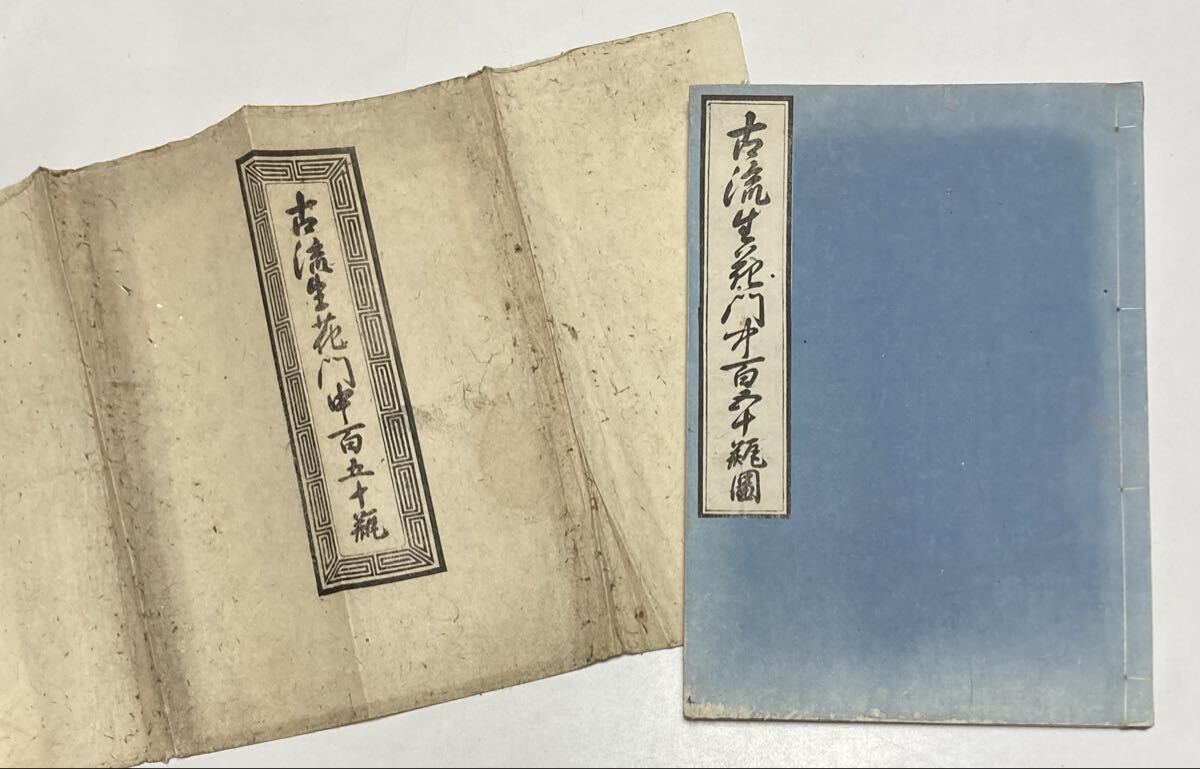 古流生花門中百五十瓶
古流生花門中百五十瓶圖